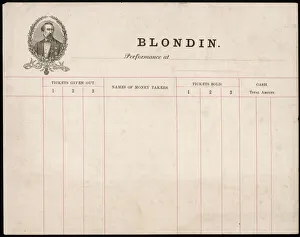 BLONDIN.
Performance at
TICKETS GIVEN OUT. NAMES OF MONEY TAKERS TICKETS SOLD. CASH.
1 2 3 1 2 3 Total Amount.